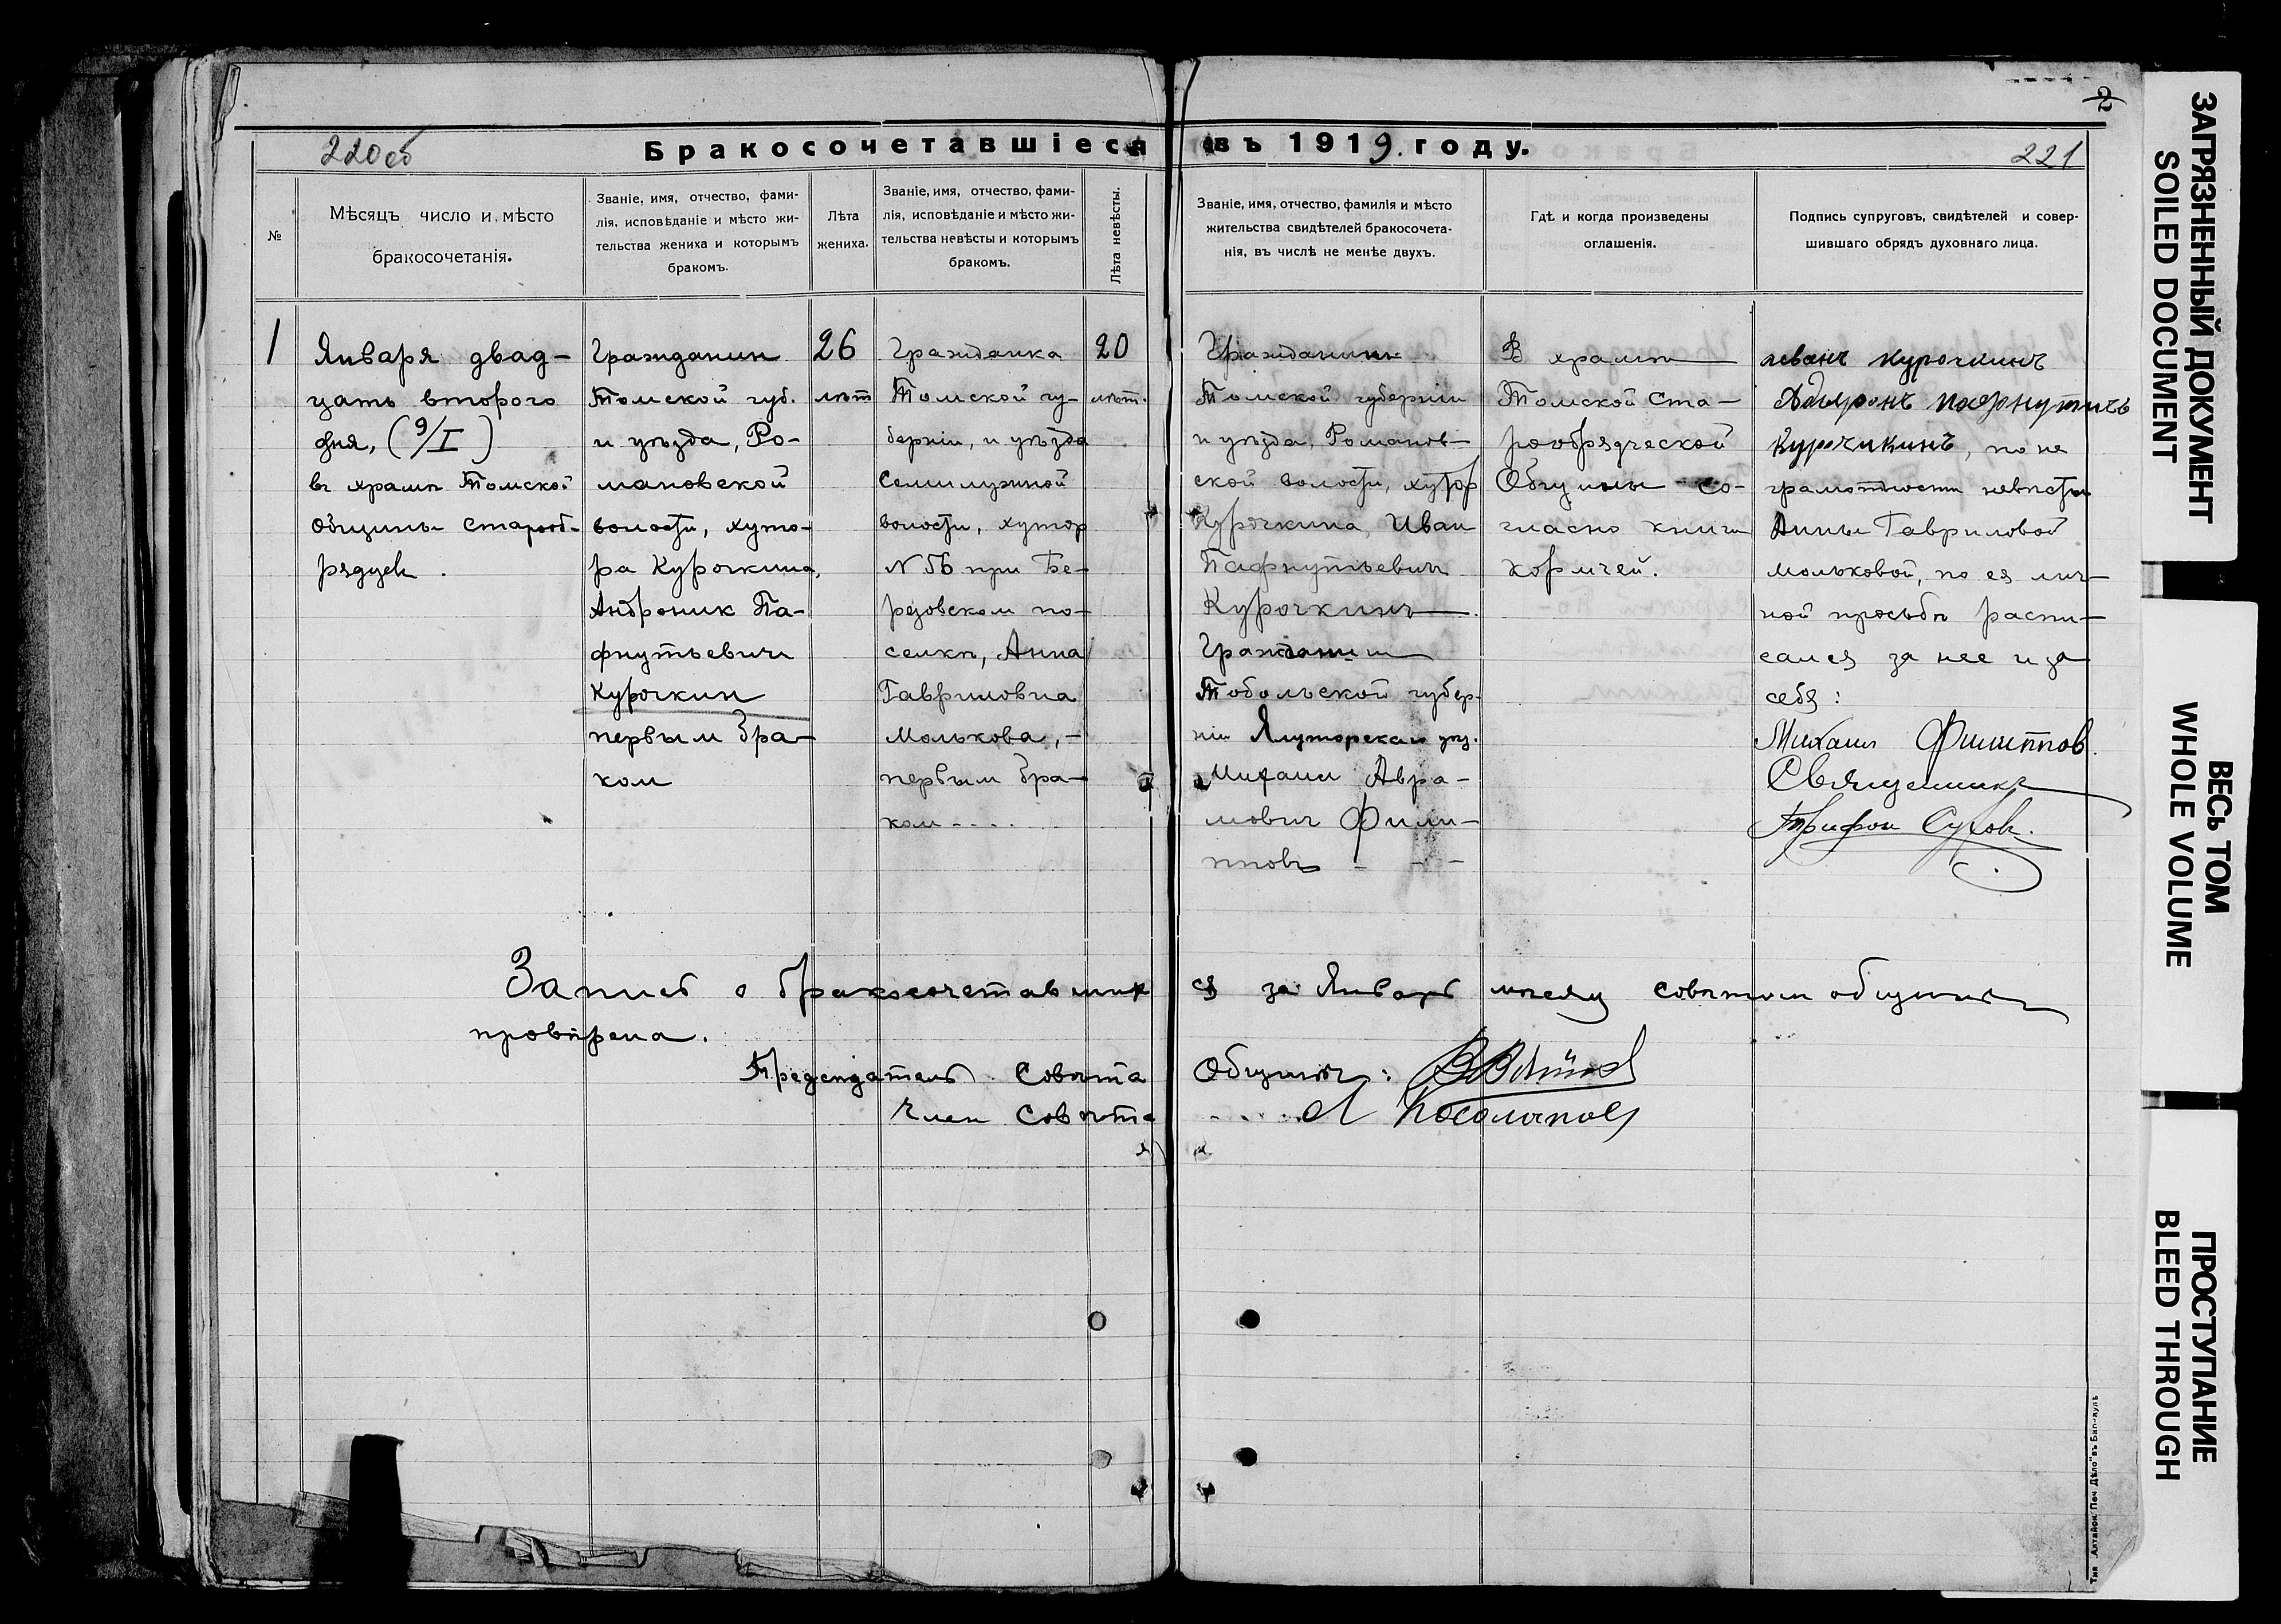 2
220об
Бракосочетавшіеся въ 1919. году.
221
№
Мѣсяцъ число и мѣсто
бракосочетанія.
Званіе, имя, отчество, фами-
лія, исповѣданіе и мѣсто жи-
тельства жениха и которымъ
бракомъ.
Лѣта
жениха.
Званіе, имя, отчество, фами-
лія, исповѣданіе и мѣсто жи-
тельства невѣсты и которымъ
бракомъ.
Лѣта невѣсты.
Званіе, имя, отчество, фамилія и мѣсто
жительства свидѣтелей бракосочета-
нія, въ числѣ не менѣе двухъ.
Гдѣ и когда произведены
оглашенія.
Подпись супруговъ, свидѣтелей и совер-
шившаго обрядъ духовнаго лица.
1
Января двад-
цать второго
дня, (9/I)
въ храмѣ Томской
Общины старооб-
рядцевъ.
Гражданин
Томской губ.
и уѣзда, Ро-
мановской
волости, хуто-
ра Курочкина,
Андроник Па-
фнутьевичъ
Курочкин
первым бра-
ком
26
лѣт
Гражданка
Томской гу-
берніи, и уѣзда
Семилужной
волости, хутор
N 56 при Бе-
резовском по-
селкѣ, Анна
Гавриловна
Молькова,-
первым бра-
ком----
20
лѣт.
Гражданинъ
Томской губерніи
и уѣзда, Романов-
ской волости, хутор
Курочкина, Иван
Пафнутьевич
Курочкинъ.
Гражданин
Тобольской губер-
ніи Ялуторскаго уѣз.
Михаил Авра-
мович Фили-
пповъ - - -
В храмѣ
Томской Ста-
рообрядческой
Общины со-
гласно книги
Кормчей.
иванъ Курочкинъ
Адьронъ пафнутичъ
Курочикинъ, по не
грамотности невѣсты
Анны Гавриловой
Мольковой, по ея лич-
ной просьбѣ распи-
сался за нее и за
себя:
Михаил Филиппов.
Священникъ
Трифон Сухов.
Запись о бракосочетавших ся за Январь мѣсяц совѣтом общины
провѣрена.
Предсѣдатель Совѣта Общины:
Член Совѣта
Л
Тип. „Алтайск. Печ. Дѣло" въ Барнаулѣ
ЗАГРЯЗНЕННЫЙ ДОКУМЕНТ
SOILED DOCUMENT
ВЕСЬ ТОМ
WHOLE VOLUME
ПРОСТУПАНИЕ
BLEED THROUGH